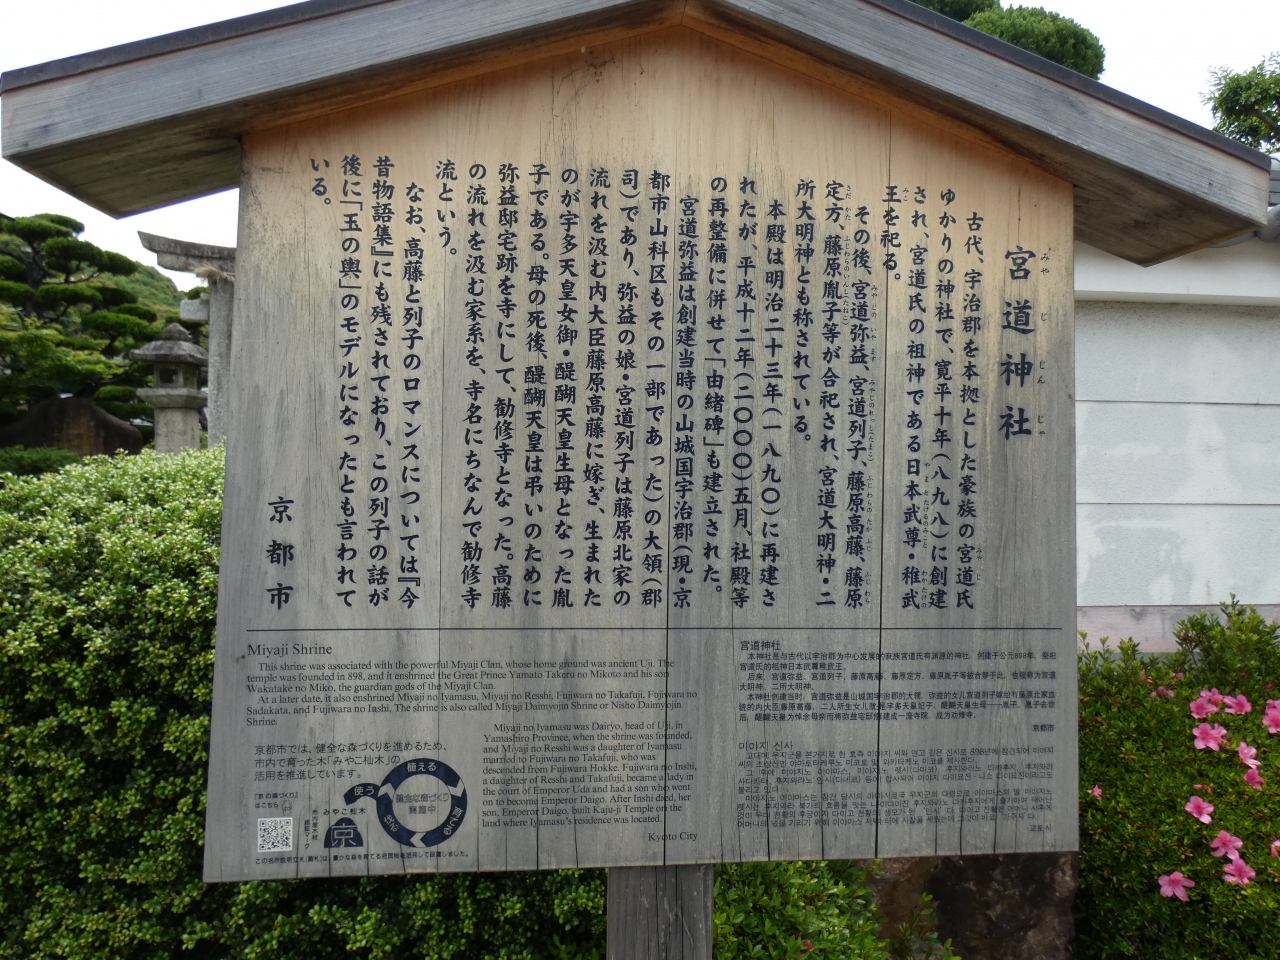 宮道神社
古代、宇治郡を本拠とした豪族の宮道氏
ゆかりの神社で、寛平十年(八九八)に創建
され、宮道氏の祖神である日本武尊・稚武
王を祀る。
その後、宮道弥益、宮道列子、藤原高藤、藤原
定方、藤原胤子等が合祀され、宮道大明神・二
所大明神とも称されている。
本殿は明治二十三年(一八九〇)に再建さ
れたが、平成十二年(二〇〇〇)五月、社殿等
の再整備に併せて「由緒碑」も建立された。
宮道弥益は創建当時の山城国宇治郡(現・京
都市山科区もその一部であった)の大領(郡
司)であり、弥益の娘・宮道列子は藤原北家の
流れを汲む内大臣藤原高藤に嫁ぎ、生まれた
のが宇多天皇女御・醍醐天皇生母となった胤
子である。母の死後、醍醐天皇は弔いのために
弥益邸宅跡を寺にして、勧修寺となった。高藤
の流れを汲む家系を、寺名にちなんで勧修寺
流という。
なお、高藤と列子のロマンスについては『今
昔物語集』にも残されており、この列子の話が
後に「玉の輿」のモデルになったとも言われて
いる。
京都市
Miyaji Shrine
This shrine was associated with the powerful Miyaji Clan, whose home ground was ancient Uji. The
temple was founded in 898, and it enshrined the Great Prince Yamato Takeru no Mikoto and his son
Wakatake no Miko, the guardian gods of the Miyaji Clan.
At a later date, it also enshrined Miyaji no Iyamasu, Miyaji no Resshi, Fujiwara no Takafuji, Fujiwara no
Sadakata, and Fujiwara no Inshi. The shrine is also called Miyaji Daimyojin Shrine or Nisho Daimyojin
Shrine.
Miyaji no Iyamasu was Dairyo, head of Uji, in
Yamashiro Province, when the shrine was founded,
and Miyaji no Resshi was a daughter of Iyamasu
married to Fujiwara no Takafuji, who was
descended from Fujiwara Hokke. Fujiwara no Inshi,
a daughter of Resshi and Takafuji, became a lady in
the court of Emperor Uda and had a son who went
on to become Emperor Daigo. After Inshi died, her
son, Emperor Daigo, built Kaju-ji Temple on the
land where Iyamasu's residence was located.
Kyoto City
京都市では、健全な森づくりを進めるため、
市内で育った木「みやこ杣木」の
活用を推進しています。
「京の森づくり」
はこちら
みやこ杣木
京
植える
育てる
使う
健全な森づくり
展開中
宮道神社
本神社是与古代以宇治郡为中心发展的豪族宫道氏有渊源的神社。创建于公元898年，祭祀
宫道氏的祖神日本武尊稚武王。
后来，宫道弥益、宫道列子、藤原高藤、藤原定方、藤原胤子等被合祭于此，也被称为宫道
大明神、二所大明神。
本神社创建当时，宫道弥益是山城国宇治郡的大领，弥益的女儿宫道列子嫁给有藤原北家血
统的内大臣藤原高藤，二人所生女儿就是宇多天皇妃子、醍醐天皇生母——胤子。胤子去世
后，醍醐天皇为悼念母亲而将弥益宅邸修建成一座寺院，成为劝修寺。
京都市
미야지 신사
교토시